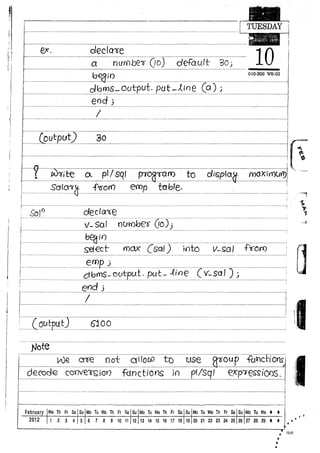 TUESDAY
10
010-356 WK-02
ex. declare
a number (10) default 30;
begin
dbms_output.put_line (a);
end;
/
(output) 30
? Write a pl/sql program to display maximum
salary from emp table.
Soln declare
v_sal number (10);
begin
select max (sal) into v_sal from
emp;
dbms_output.put_line (v_sal);
end;
/
(output) 6100
Note
We are not allow to use group functions,
decode conversion functions in pl/sql expressions.
FEB
MAR
February We Th Fr Sa Su Mo Tu We Th Fr Sa Su Mo Tu We Th Fr Sa Su Mo Tu We Th Fr Sa Su Mo Tu We
2012 1 2 3 4 5 6 7 8 9 10 11 12 13 14 15 16 17 18 19 20 21 22 23 24 25 26 27 28 29